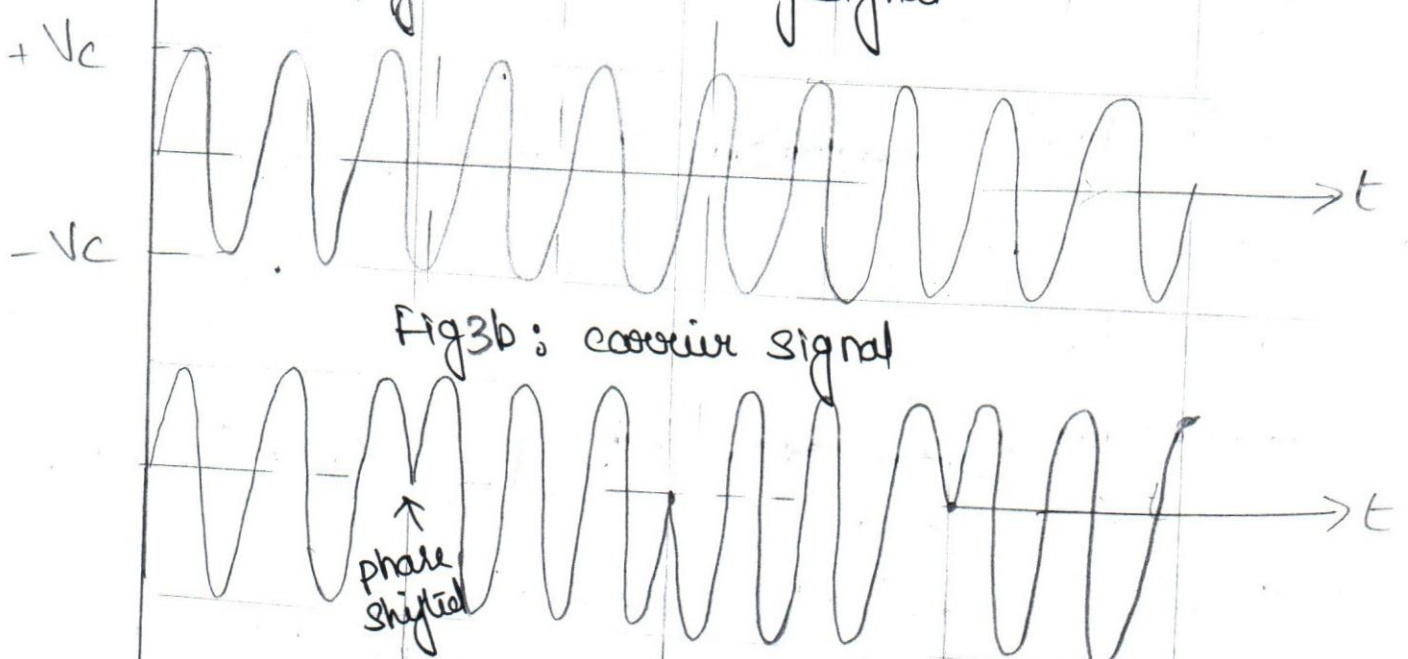 signal
+ Vc
t
- Vc
Fig3b : carrier signal
t
phase
shifted